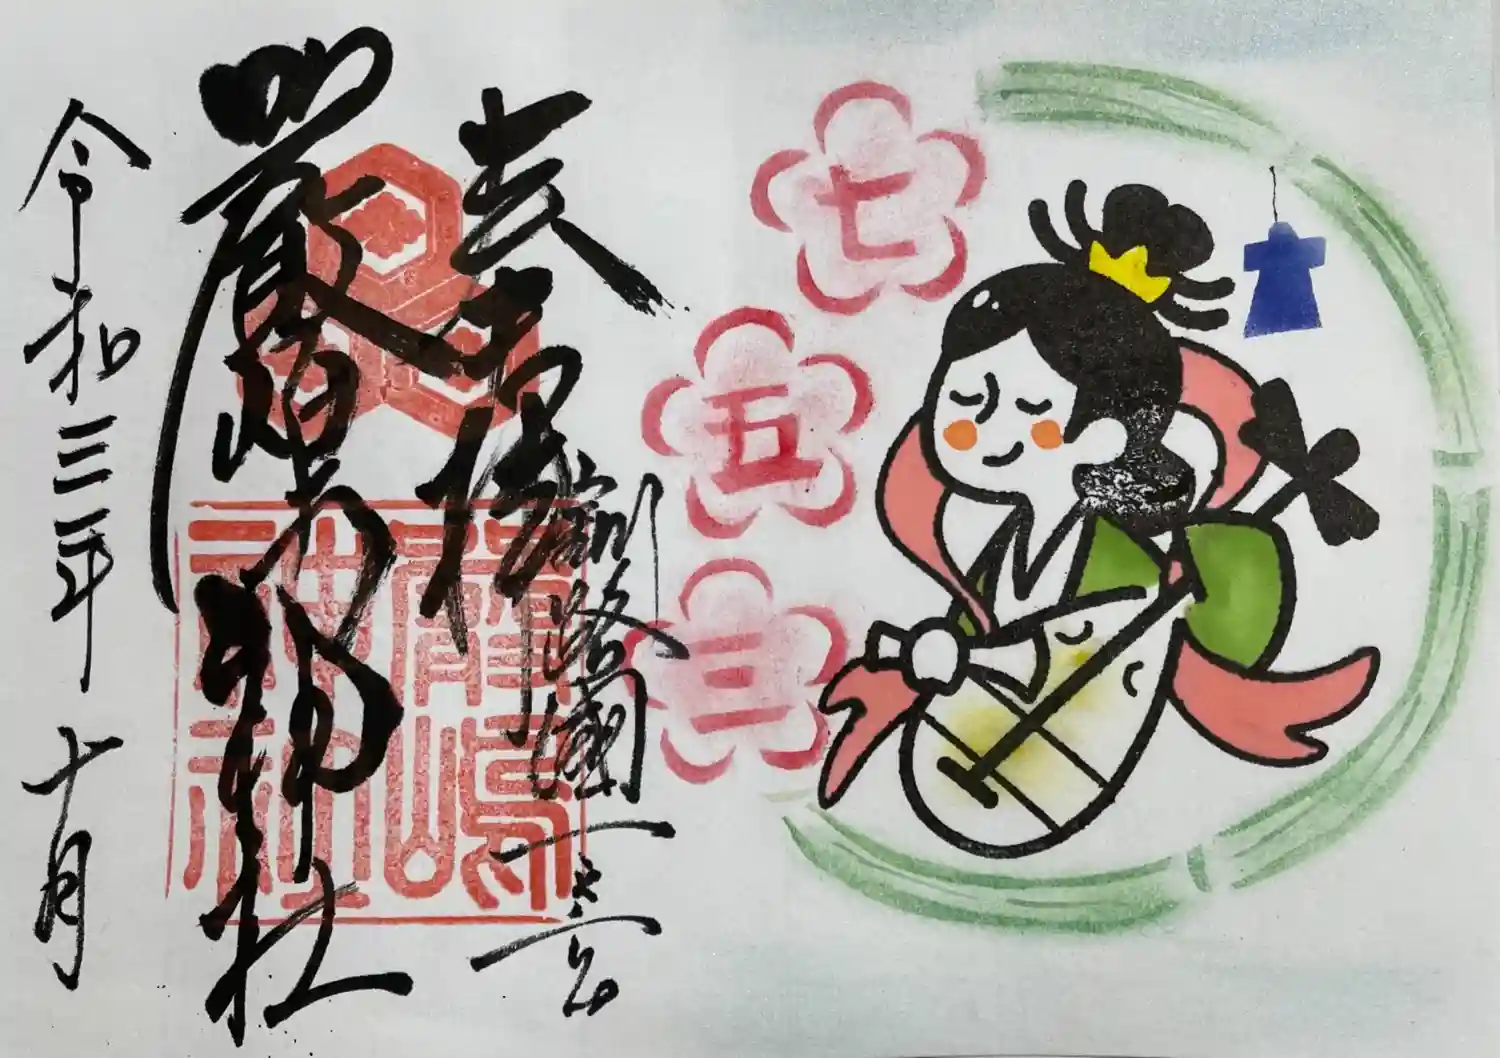 七
五
三
釧路國一之宮
奉拝
嚴島神社
嚴嶋
神社
令和三年十月